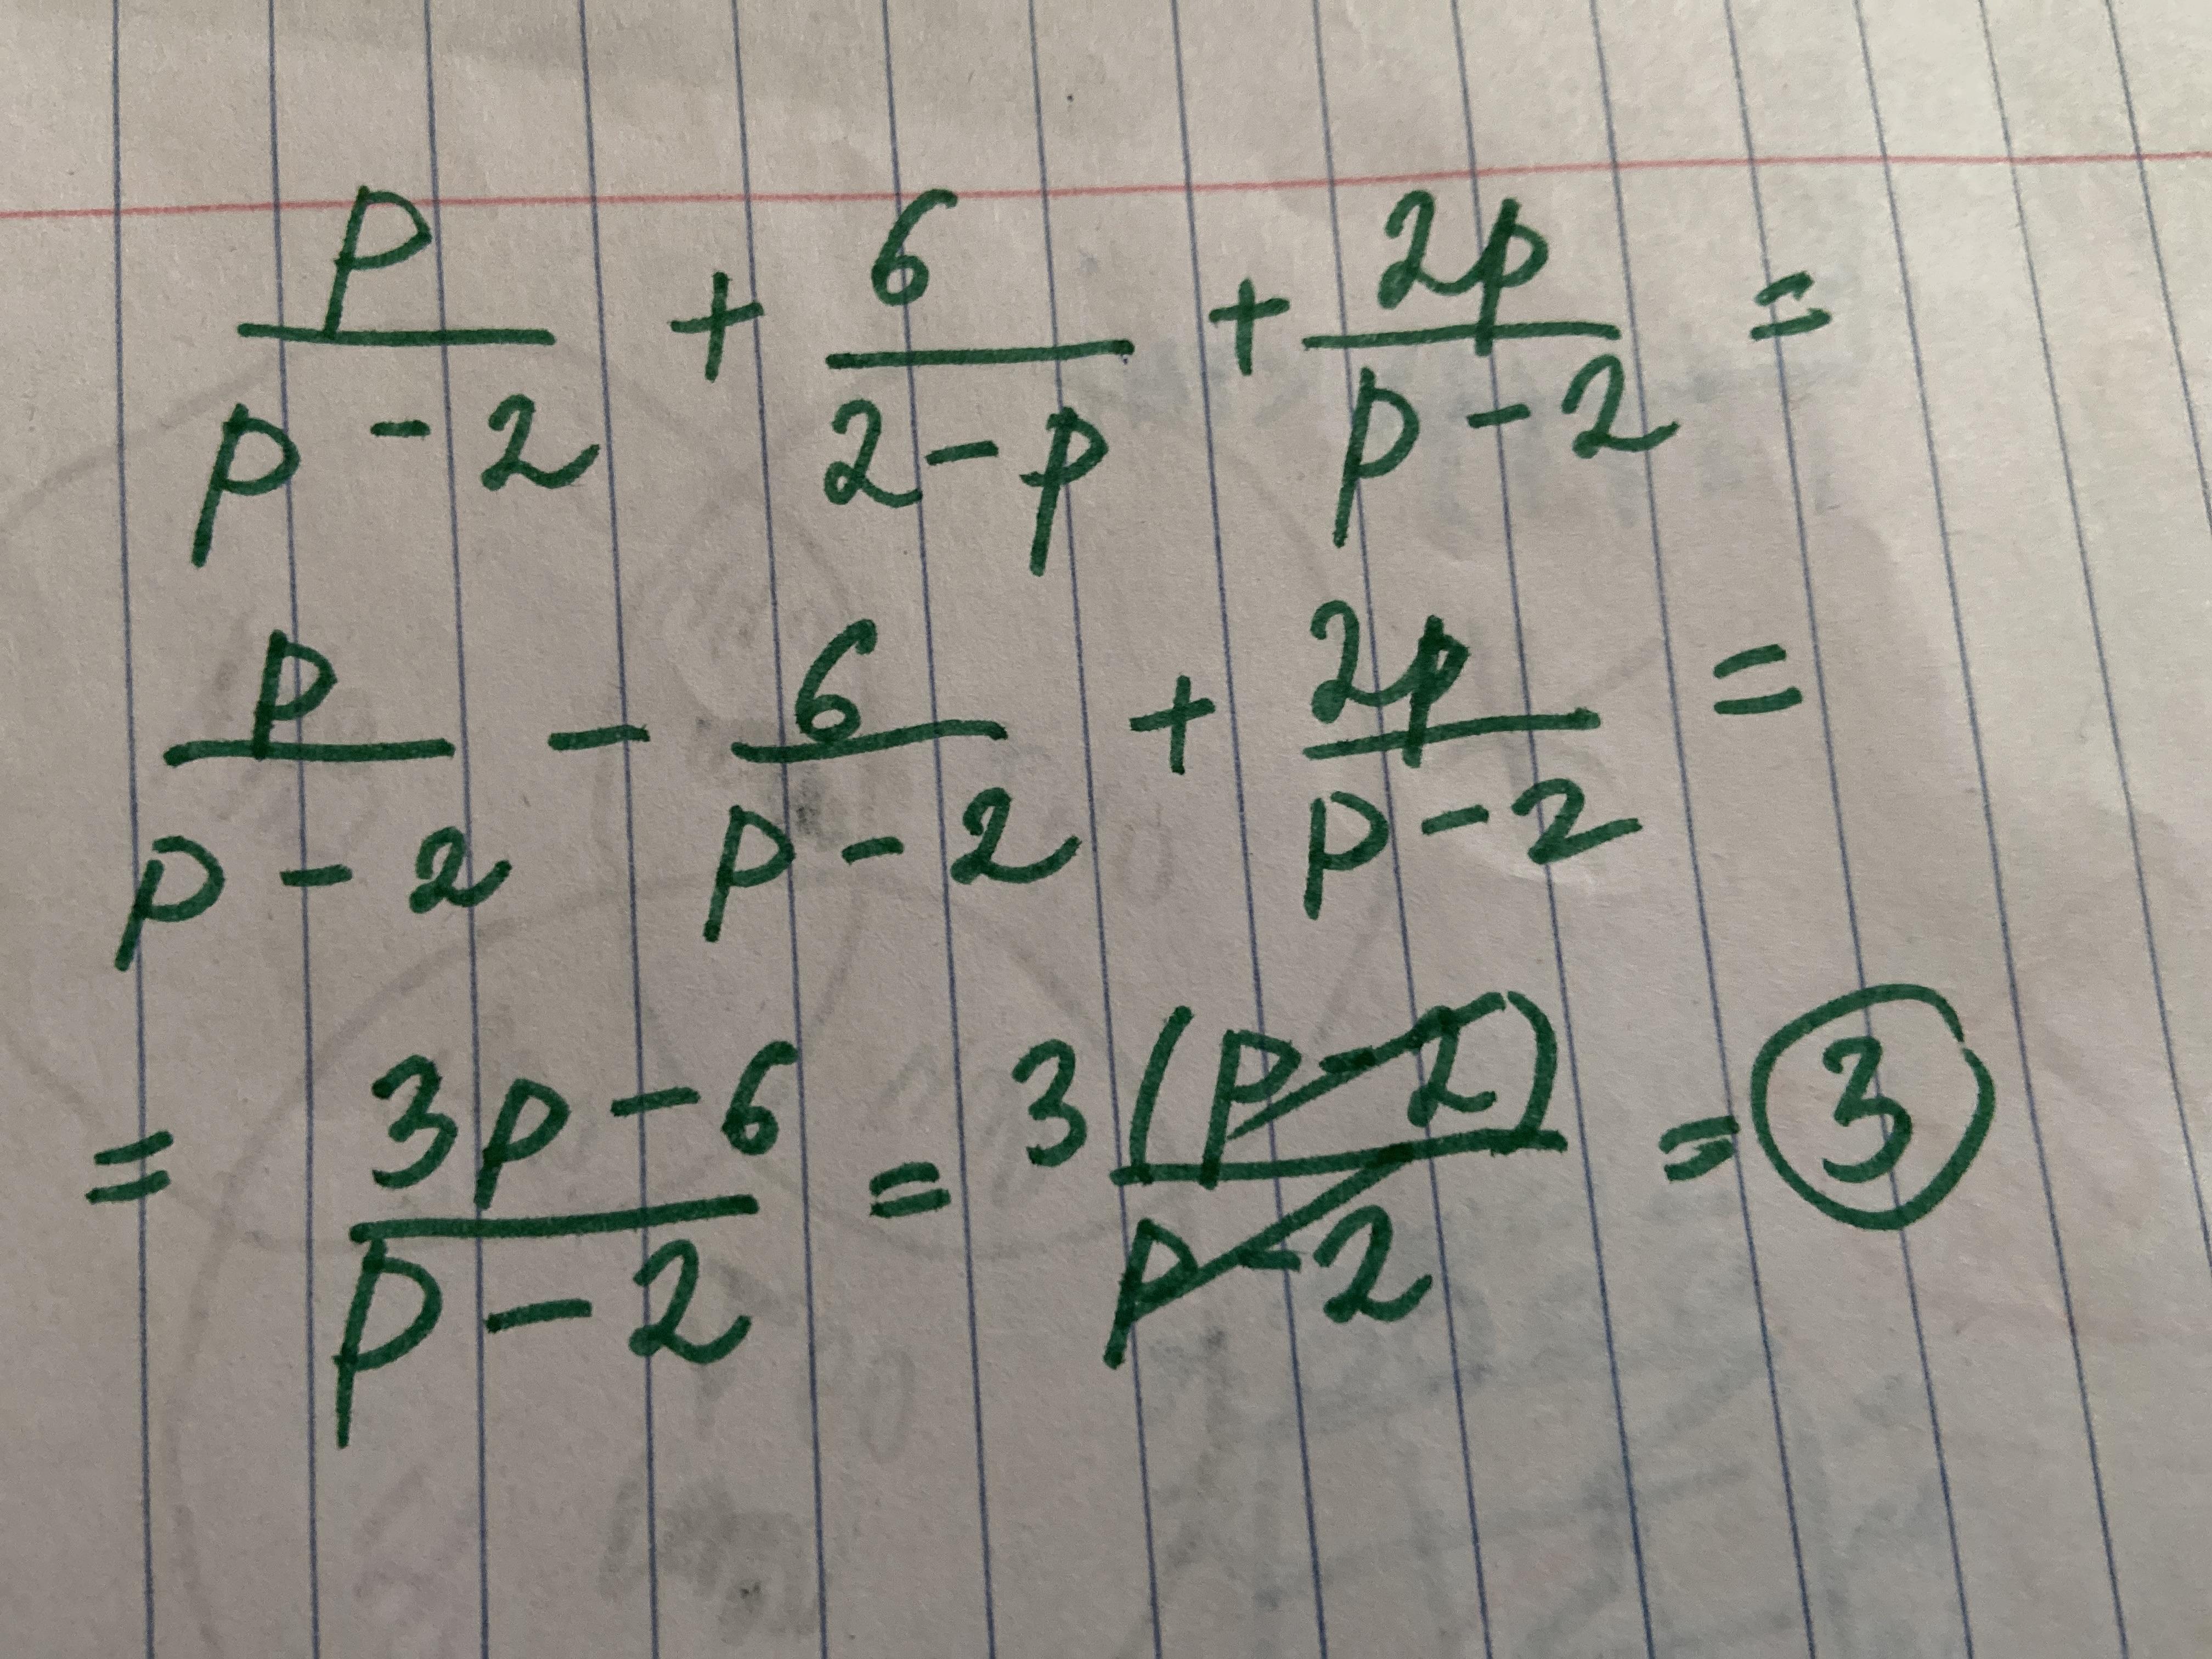 p/(p - 2) + 6/(2 - p) + 2p/(p - 2) =
p/(p - 2) - 6/(p - 2) + 2p/(p - 2) =
= (3p - 6)/(p - 2) = 3(p - 2)/(p - 2) = 3